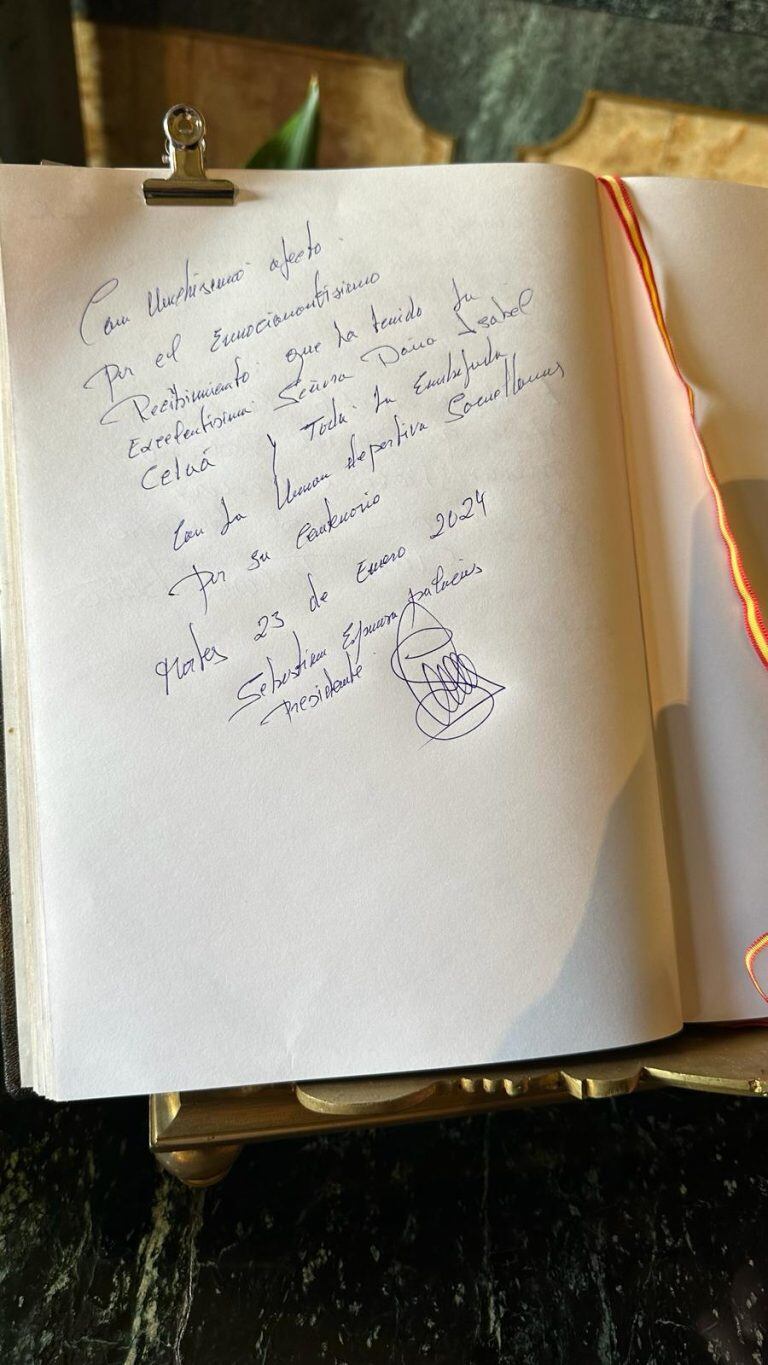 Con Muchisimo afecto.
Por el Emocionantisimo
Recibimiento que ha tenido La
Excelentisima Señora Doña Isabel
Celaá y Toda La Embajada
Con La Union deportiva Sacuellamos
Por su Centenario
Martes 23 de Enero 2024
Sebastian Espinosa Palacios
Presidente